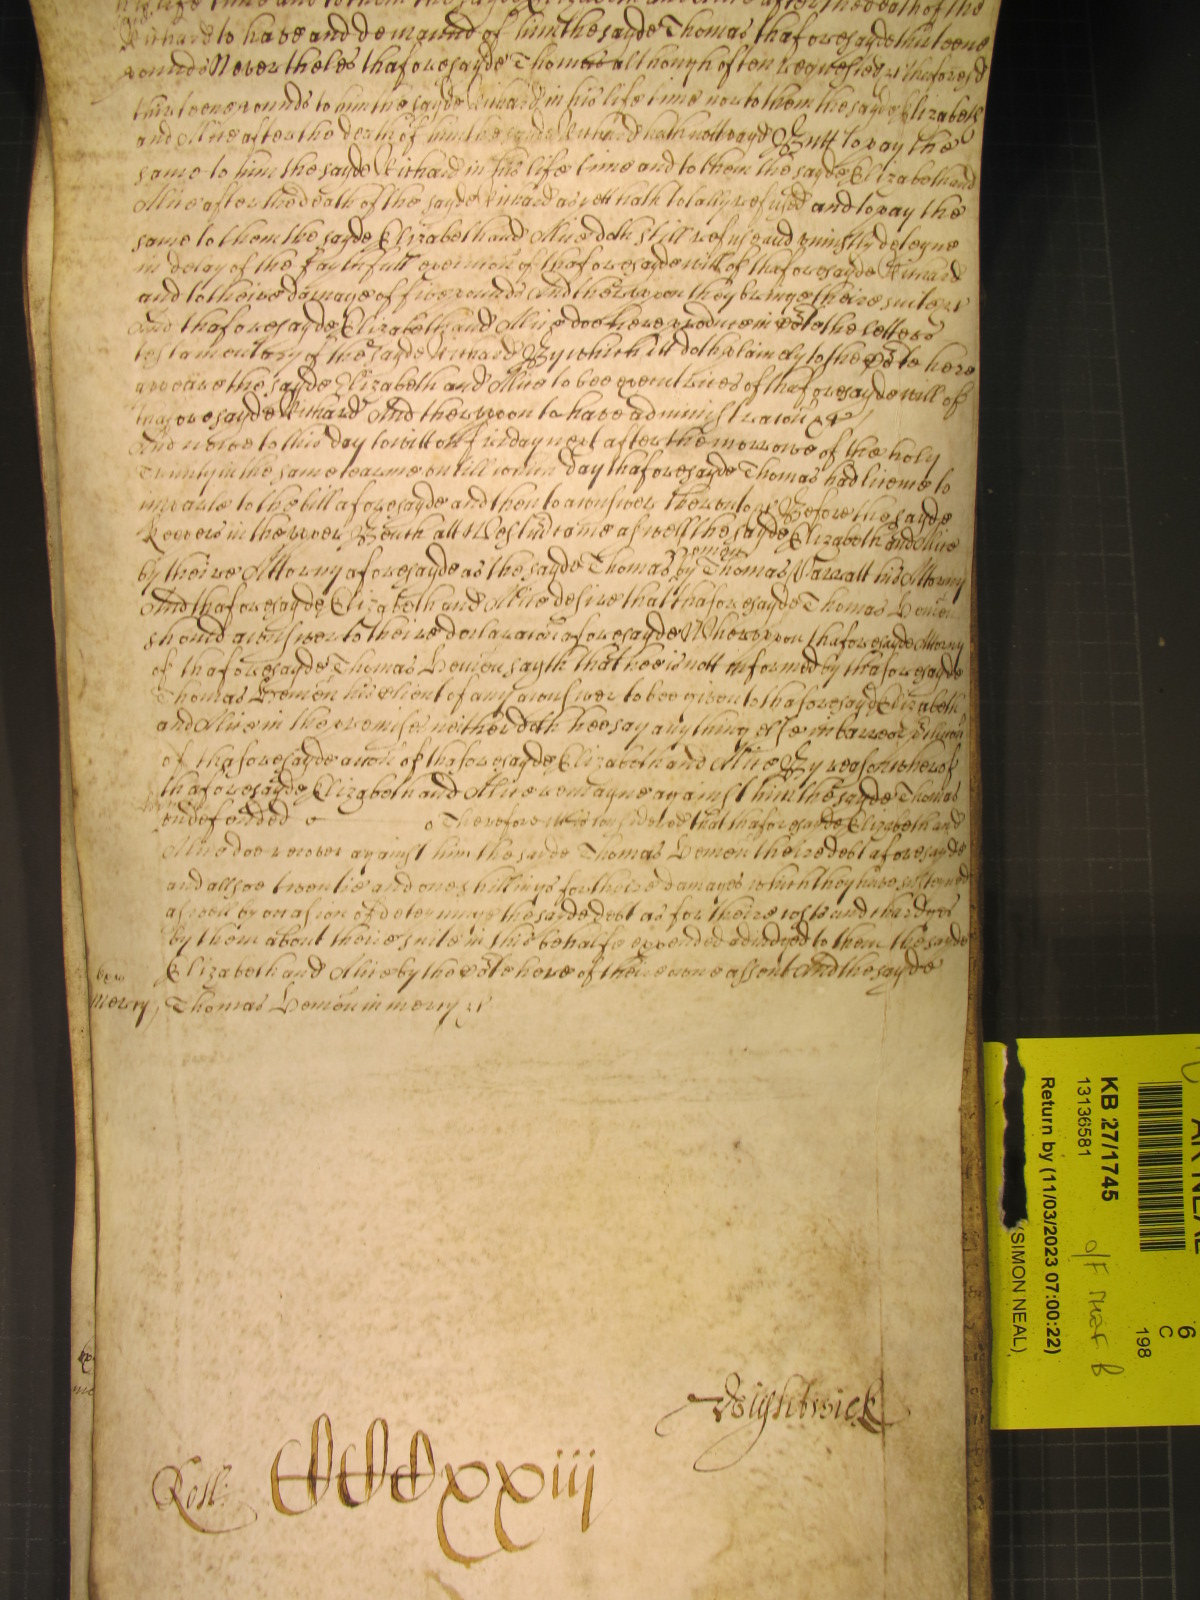 his life time and to them the sayde Elizabeth and Alice after the death of the
Richard to have and demaund of him the sayde Thomas thaforesayde thirteene
pounds Neverthelesse thaforesayde Thomas although often requested thaforesd
thirteene pounds to him the sayde Richard in his life time nor to them the sayde Elizabeth
and Alice after the death of him the sayde Richard hath nott payd Butt to pay the
same to him the sayde Richard in his life time and to them the sayde Elizabeth and
Alice after the death of the sayde Richard as yett hath totally refused and to pay the
same to them the sayde Elizabeth and Alice doth still refuse and uniustly deteyne
in delay of the faythfull execucion of thaforesayde will of thaforesayde Richard
and to theire damage of five pounds And thereupon they bringe theire suite &c
And thaforesayde Elizabeth and Alice doe here produce in to the letters
testamentary of the sayde Richard By which itt doth plainely to the here
appeare the sayde Elizabeth and Alice to bee executrices of thaforesayde will of
thaforesayde Richard And thereupon to have administracion &c
And nowe to this day to witt on Friday next after the morrowe of the holy
Trinity in the same tearme untill which day thaforesayde Thomas had licence to
imparle to the bill aforesayde and then to answer thereunto &c Before the sayde
Keepers in the upper Bench att Westm came as well the sayde Elizabeth and Alice
by theire Attorny aforesayde as the sayde Thomas Lemon by Thomas Warratt his Attorny
And thaforesayde Elizabeth and Alice desire that thaforesayde Thomas Lemon
should answer to theire declaracion aforesayde Whereupon thaforesayde Attorny
of thaforesayde Thomas Lemon sayth that hee is nott informed by thaforesayde
Thomas Lemon his client of any answer to bee given to thaforesayde Elizabeth
and Alice in the premises neither doth hee say any thing else in barr or
of thaforesayde accon of thaforesayde Elizabeth and Alice By reason whereof
thaforesayde Elizabeth and Alice remayne against him the sayde Thomas
undefended Therefore itt is considered that thaforesayde Elizabeth and
Alice doe recover against him the sayde Thomas Lemon theire debt aforesayde
and allsoe twentie and one shillings for theire damages which they have susteined
as well by occasion of deteyninge the sayde debt as for theire costs and chardges
by them about theire suite in this behalfe expended adiudged to them the sayde
Elizabeth and Alice by the here of theire owne assent And the sayde
Mercy Thomas Lemon in mercy &c
Wightwick
Roll: CCCxxiij
KB 27/1745
13136581
Return by (11/03/2023 07:00:22)
(SIMON NEAL)
6
C
198